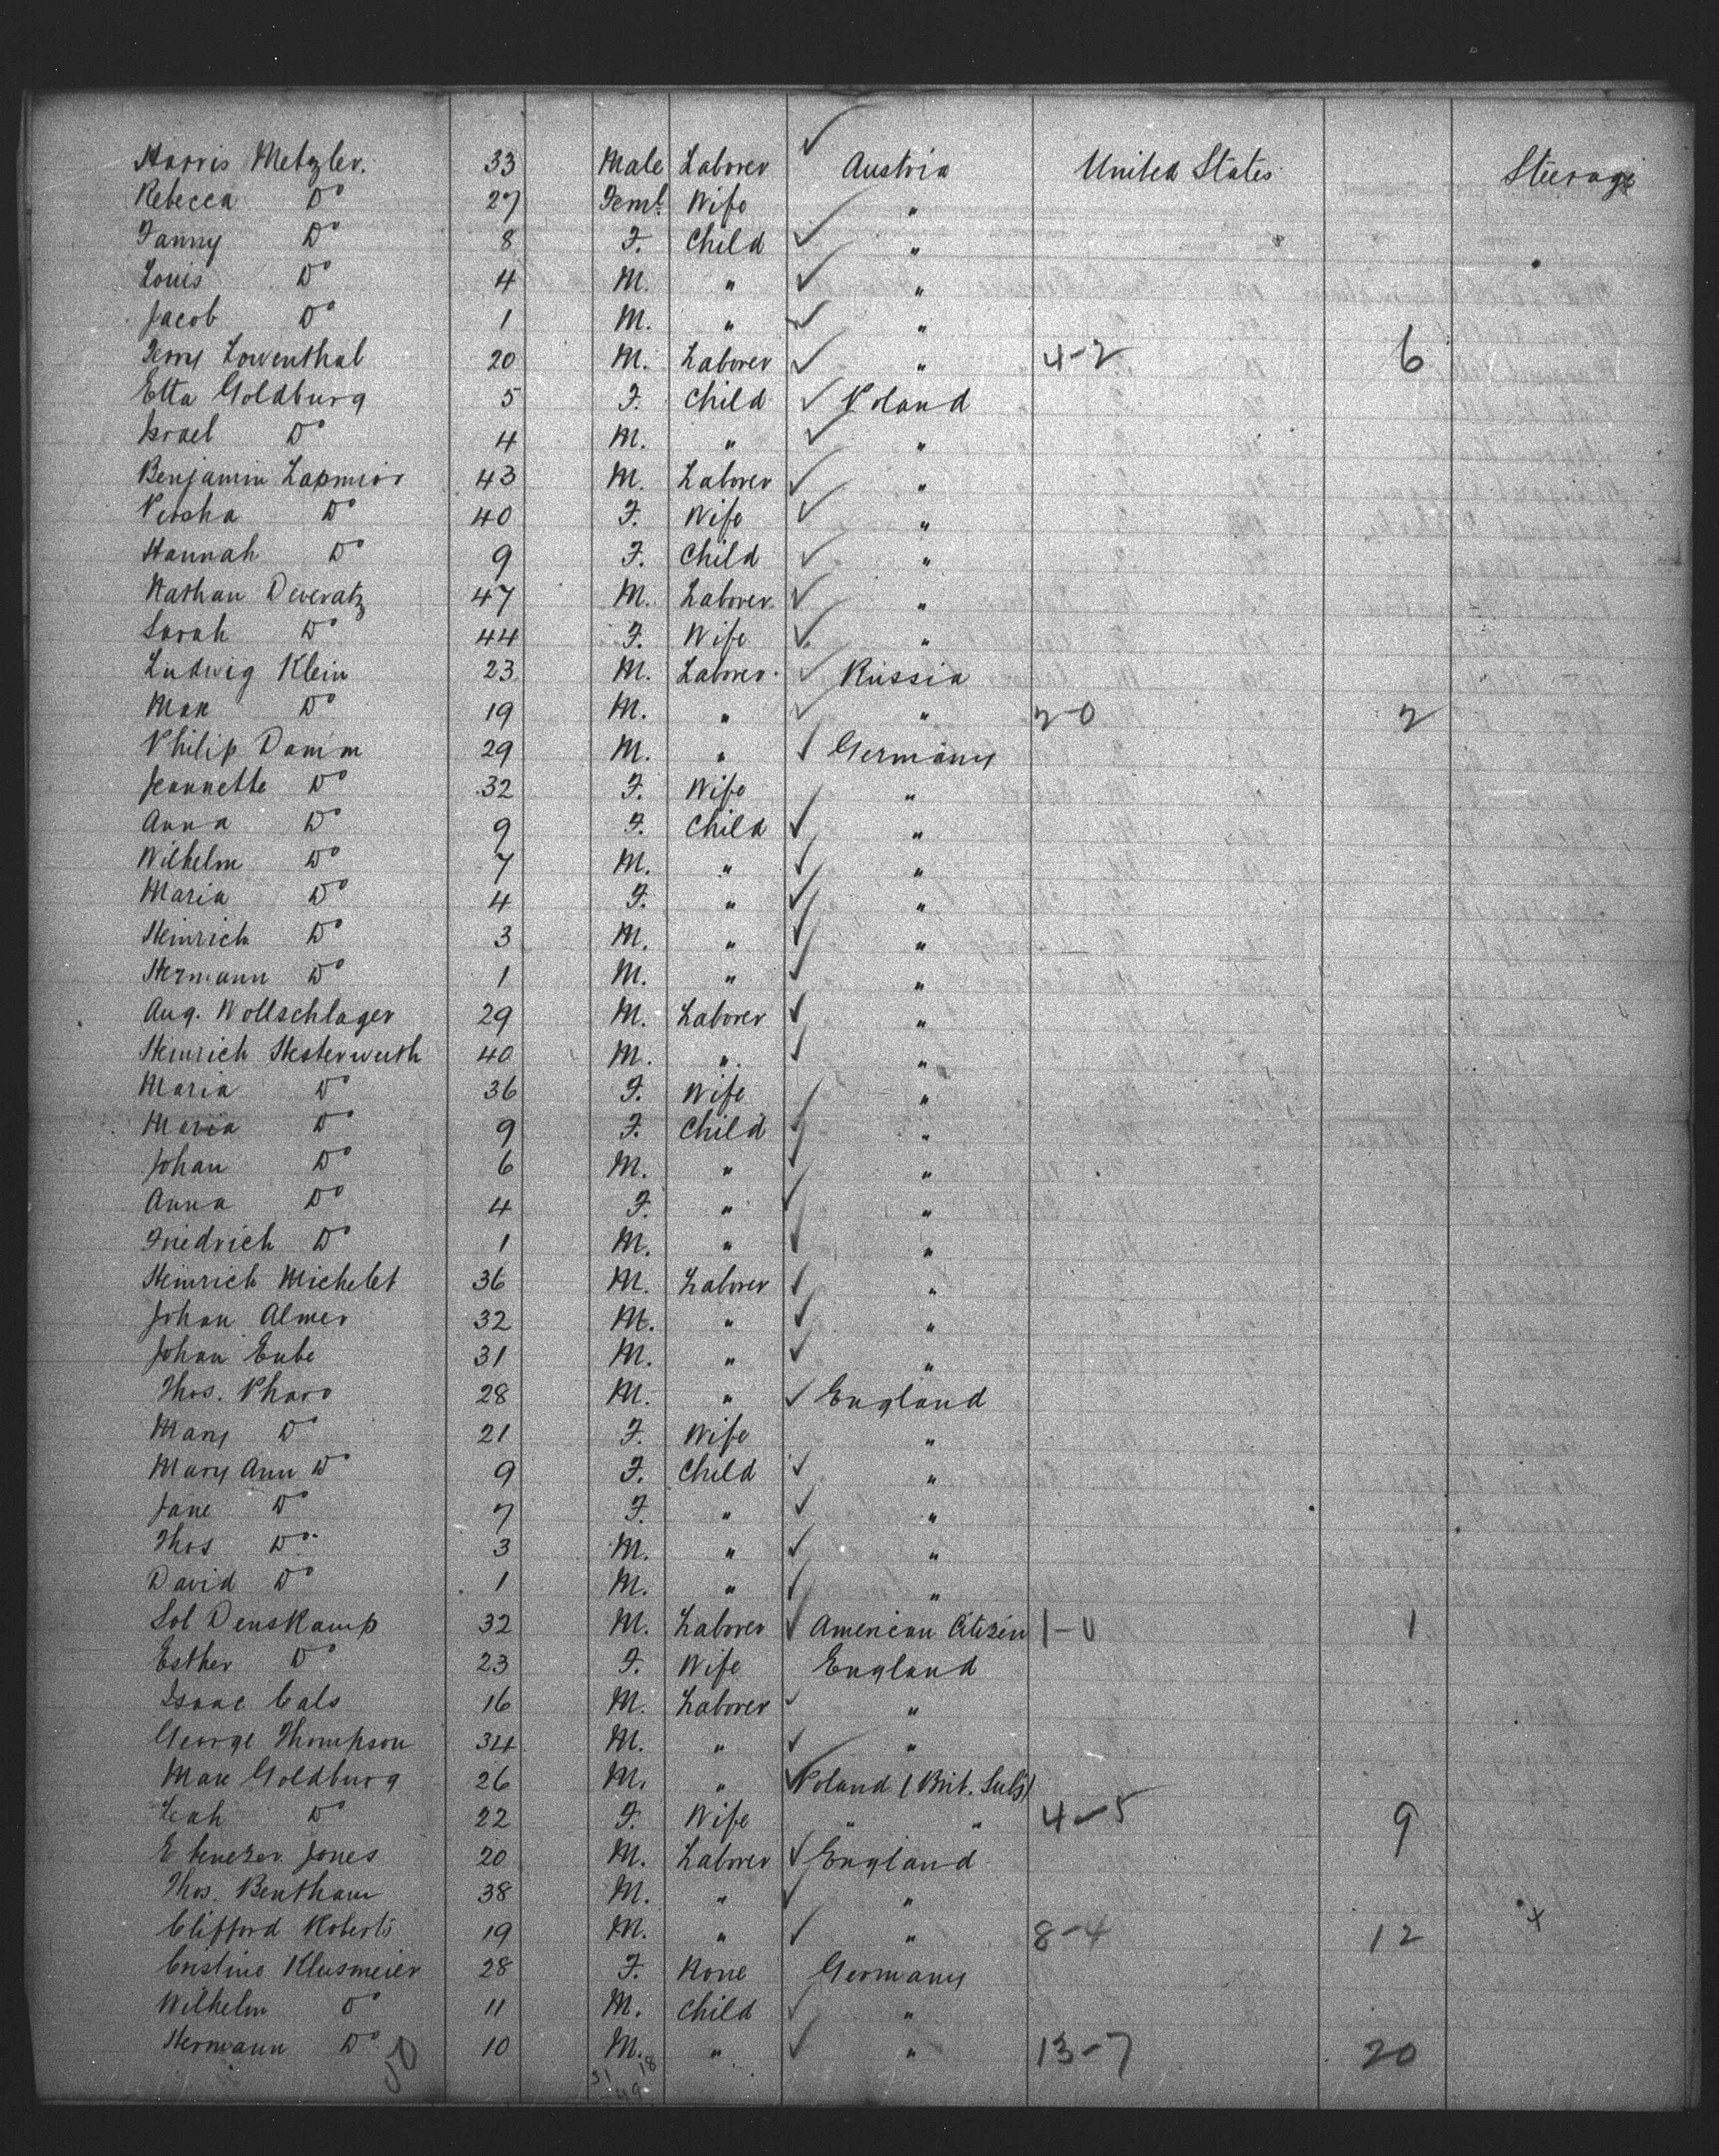 Harris Metzler. 33 Male Laborer Austria United States Steerage
Rebecca Do 27 Feml. Wife "
Fanny Do 8 F. Child "
Louis Do 4 M. " "
Jacob Do 1 M. " "
Lowenthal 20 M. Laborer " 4-2 6
Etta Goldburg 5 F. Child Poland
Israel Do 4 M. " "
Benjamin 43 M. Laborer "
Do 40 F. Wife "
Hannah Do 9 F. Child "
Nathan Deveratz 47 M. Laborer "
Sarah Do 44 F. Wife "
Ludwig Klein 23 M. Laborer Russia
Max Do 19 M. " " 2-0 2
Philip Damm 29 M. " Germany
Jeannette Do 32 F. Wife "
Anna Do 9 F. Child "
Wilhelm Do 7 M. " "
Maria Do 4 F. " "
Heinrich Do 3 M. " "
Hermann Do 1 M. " "
Aug. Wollschlager 29 M. Laborer "
Heinrich Hesterwerth 40 M. " "
Maria Do 36 F. Wife "
Maria Do 9 F. Child "
Johan Do 6 M. " "
Anna Do 4 F. " "
Friedrich Do 1 M. " "
Heinrich Michelet 36 M. Laborer "
Johan Almer 32 M. " "
Johan Eube 31 M. " "
Thos. Pharo 28 M. " England
Mary Do 21 F. Wife "
Mary Ann Do 9 F. Child "
Jane Do 7 F. " "
Thos Do 3 M. " "
David Do 1 M. " "
Sol Denskamp 32 M. Laborer American Citizen 1-0 1
Esther Do 23 F. Wife England
Isaac Cals 16 M. Laborer "
George Thompson 34 M. " "
Max Goldburg 26 M. " Poland (Brit. Subj)
Leah Do 22 F. Wife " " 4-5 9
Ebenezer Jones 20 M. Laborer England
Thos. Bentham 38 M. " "
Clifford Roberts 19 M. " " 8-4 12 x
Cristine Klusmeier 28 F. None Germany
Wilhelm Do 11 M. Child "
Hermann Do 10 M. " " 13-7 20
50 31 18
49